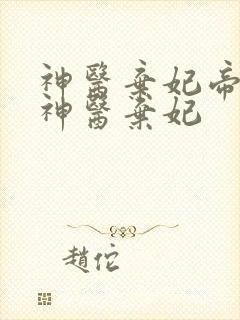 神醫棄妃帝
神醫棄妃
趙佗